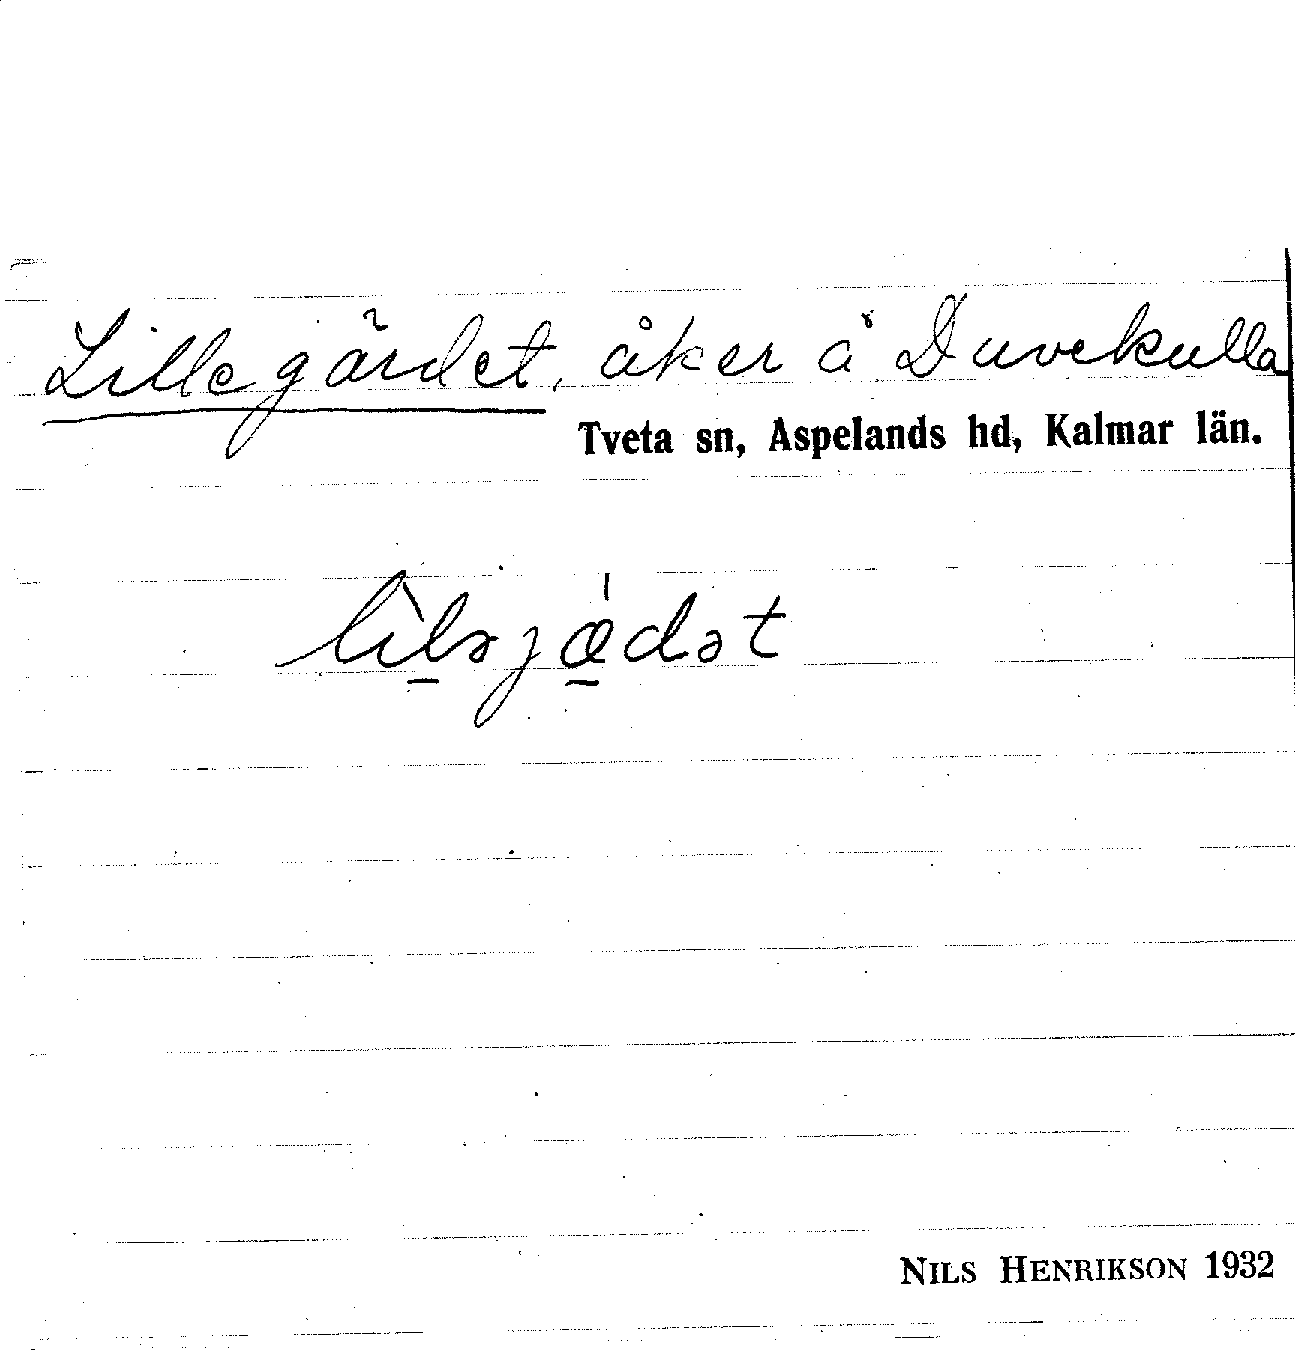 Lillegärdet, åker å Duvekulla
Tveta sn, Aspelands hd, Kalmar län.
lìləjǽdət
NILS HENRIKSON 1932